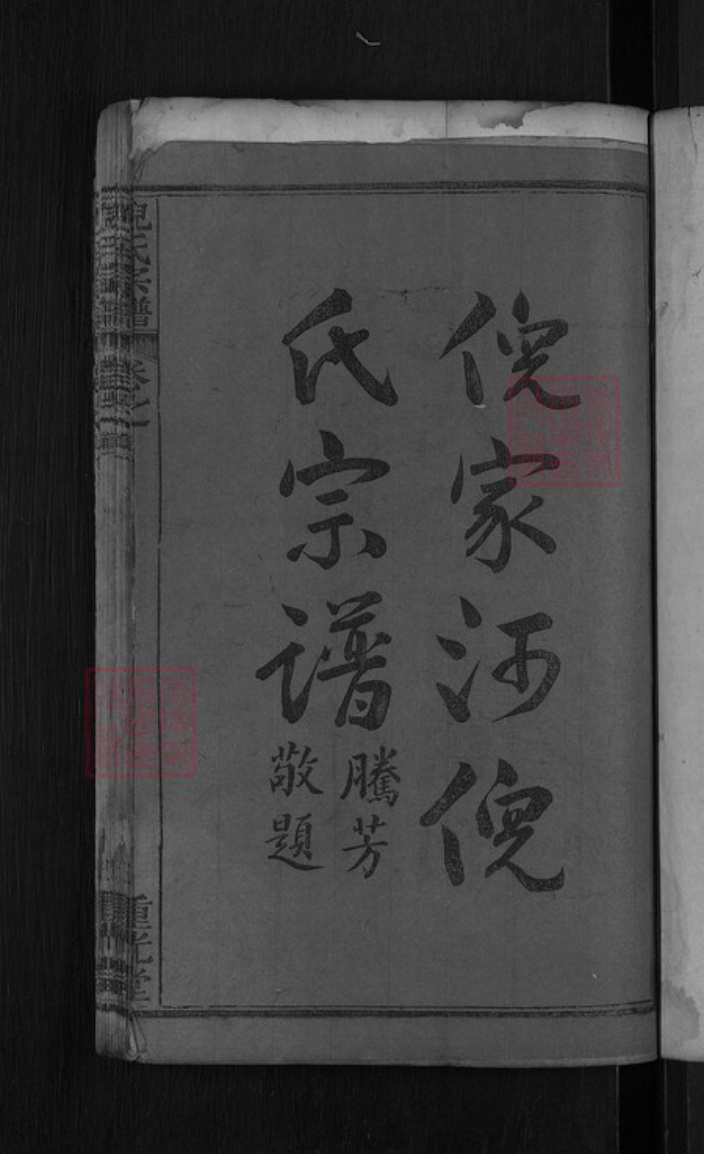 倪家河倪
氏宗譜
騰芳
敬題
倪氏宗譜
卷之一
重光堂